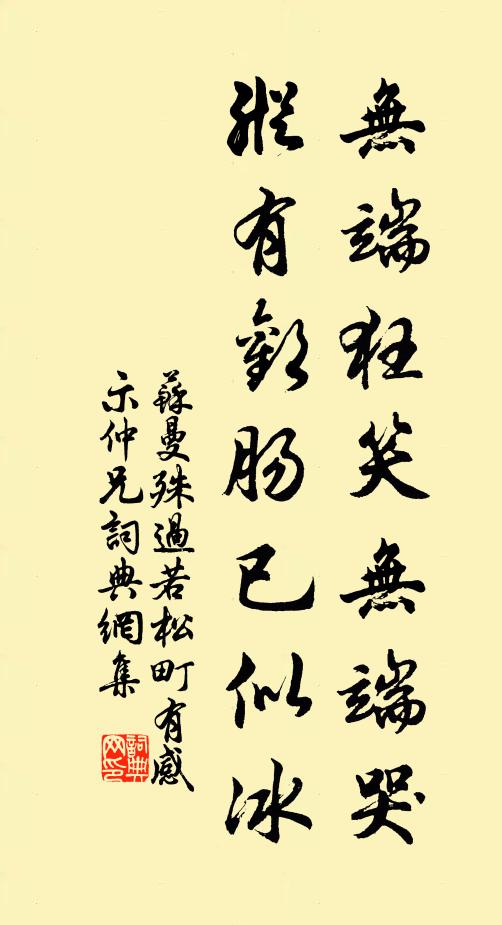 無端狂笑無端哭
縱有歡腸已似冰
蘇曼殊過若松町有感
示仲兄詞典網集
詞典
网印